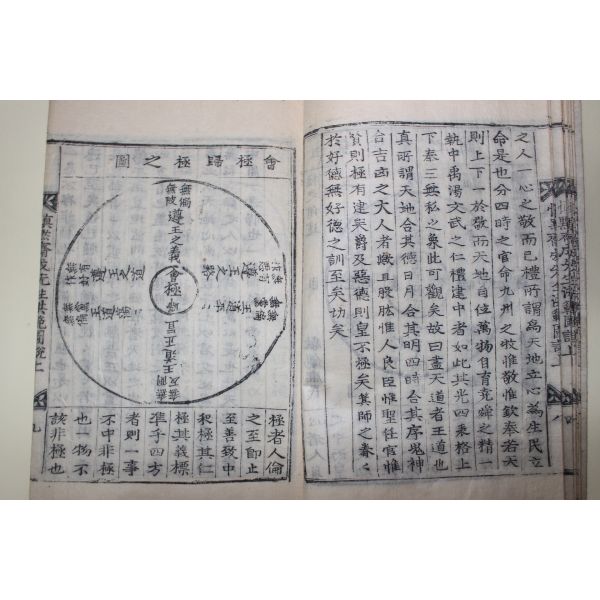 之人一心之敬而已禮所謂爲天地立心爲生民立
命是也分四時之官命九州之牧惟敬惟欽奉若天
則上下一於敬而天地自位萬物自育堯舜之精一
執中禹湯文武之仁禮建中者如此其光四表格上
下奉三無私之象此可觀矣故曰盡天道者王道也
真所謂天地合其德日月合其明四時合其序鬼神
合吉凶之大人者歟且股肱惟人良臣惟聖任官惟
賢則極有建矣爵及惡德則皇不極矣箕師之眷々
於好德無好德之訓至矣切矣
會極歸極之圖
無偏無陂遵王之義
無有作好遵王之道
無有作惡遵王之路
無偏無黨王道蕩蕩
無黨無偏王道平平
無反無側王道正直
會極歸極
極者人倫
之至即止
至善致中
和極其仁
極其義標
準乎四方
者則一事
不中非極
也一物不
該非極也
九